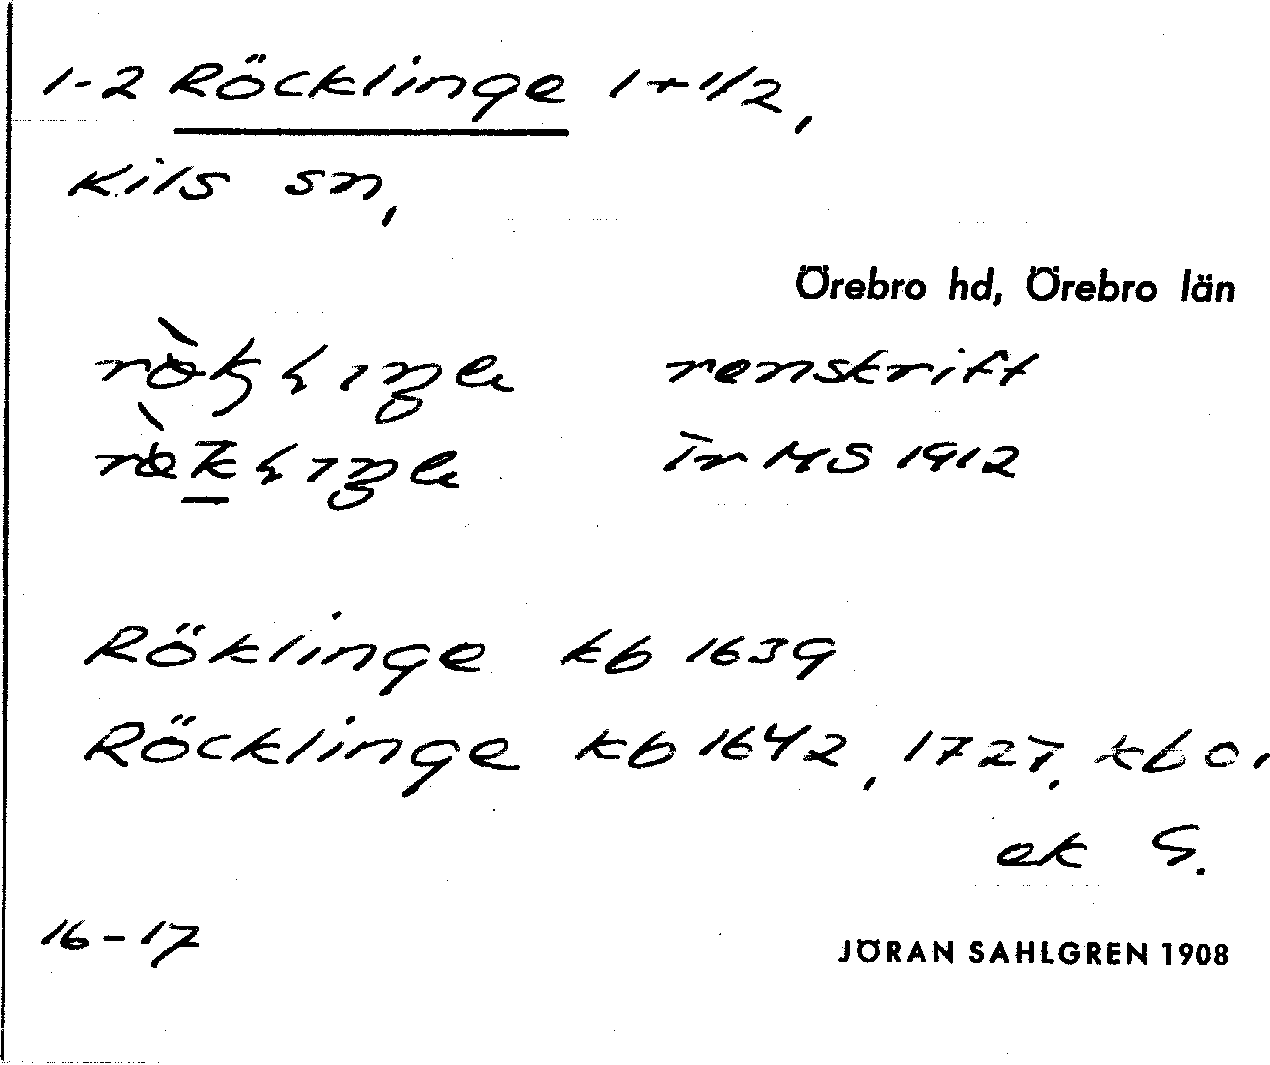 1-2 Röcklinge 1+1/2,
Kils sn,
Örebro hd, Örebro län
renskrift
MS 1912
Röklinge kb 1639
Röcklinge kb 1642, 1727, kb o,
ek G.
16-17
JÖRAN SAHLGREN 1908